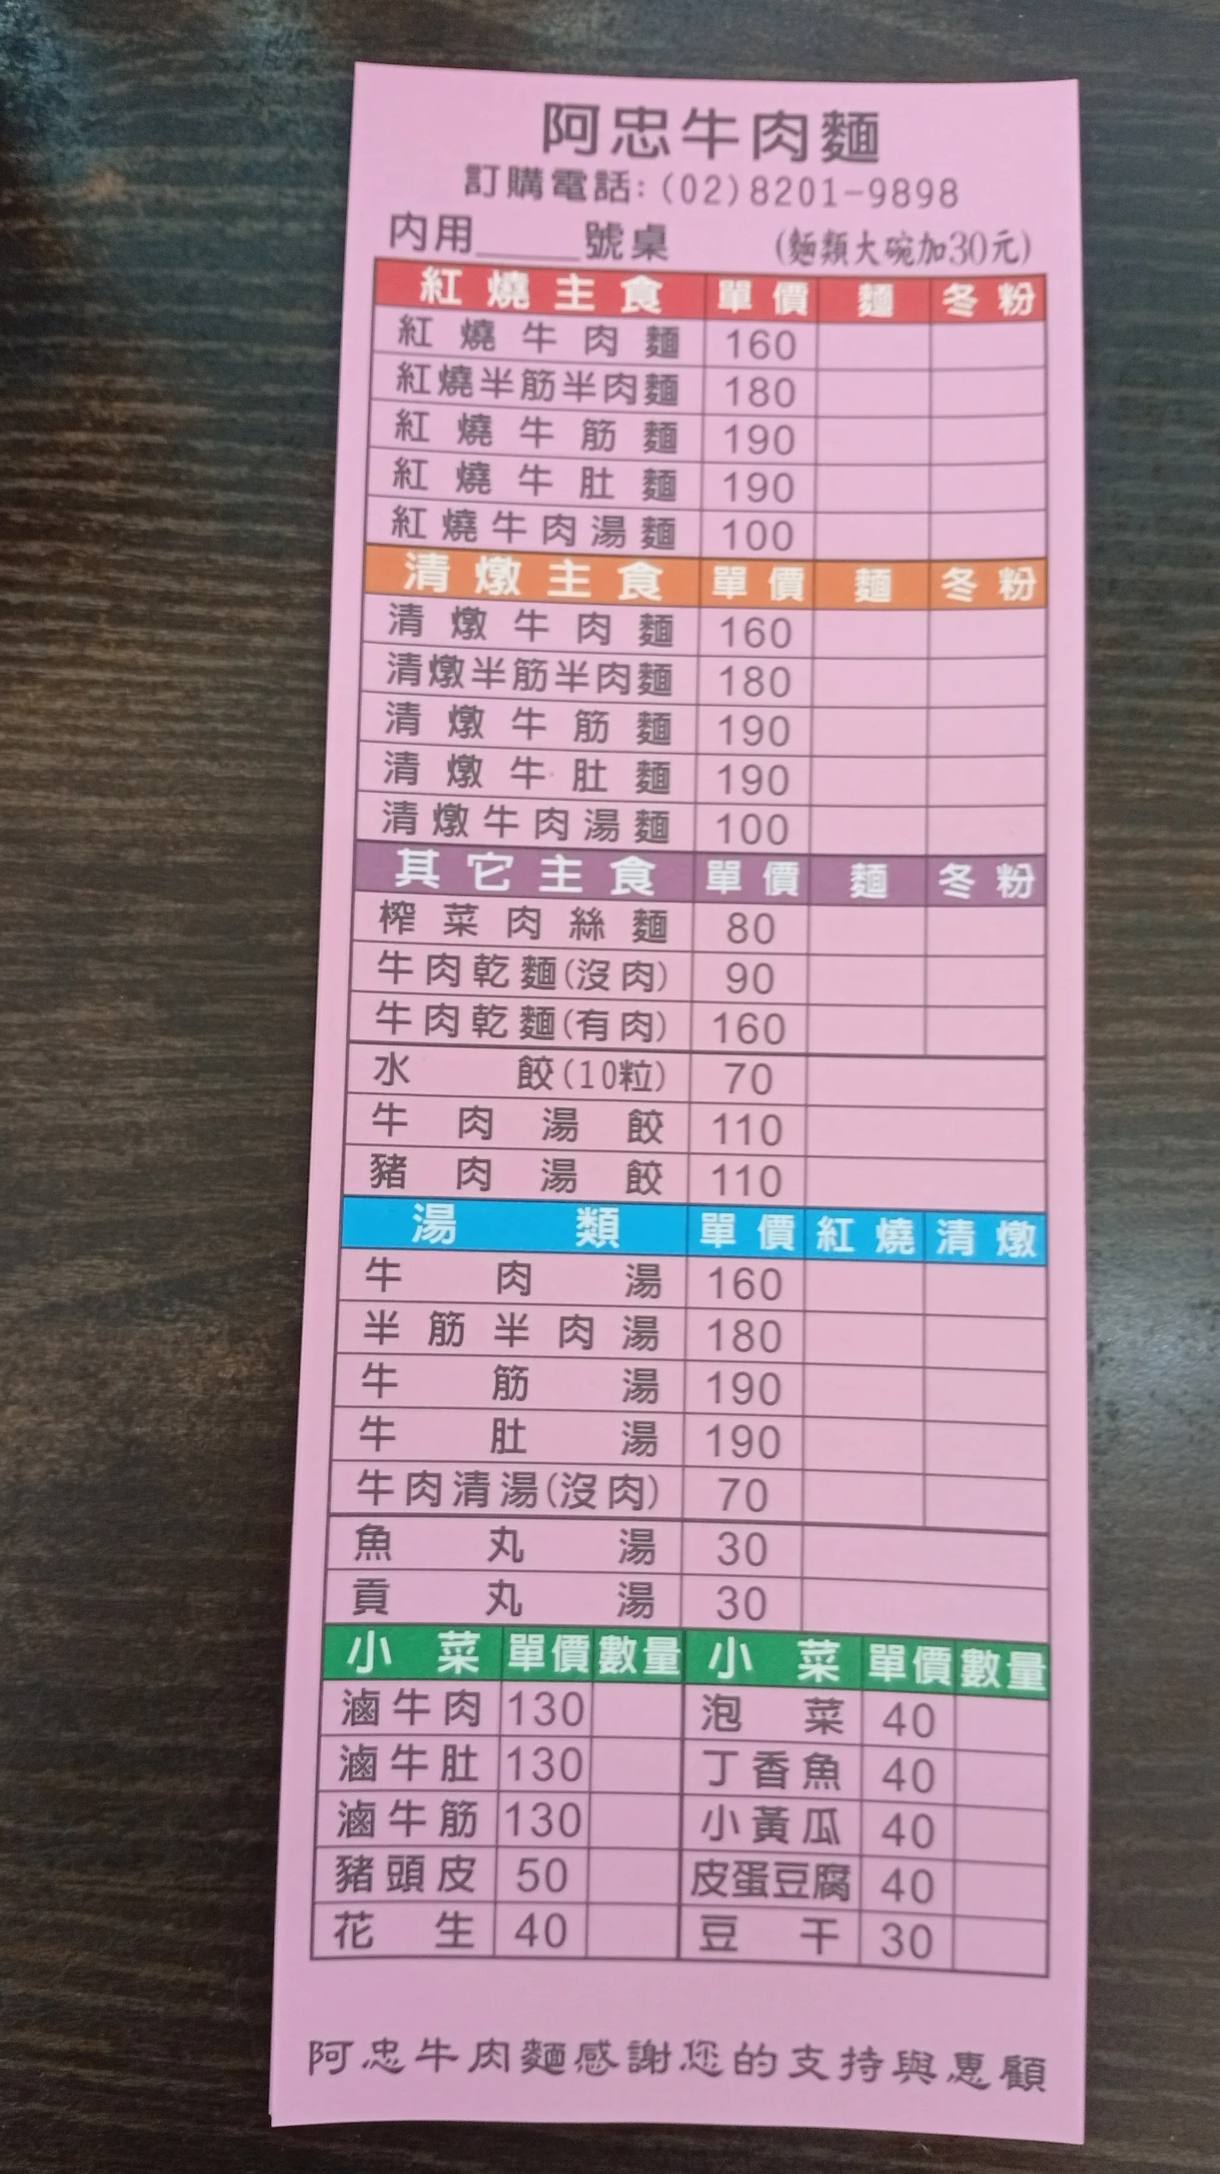 阿忠牛肉麵
訂購電話:(02)8201-9898
內用_____號桌 (麵類大碗加30元)
紅燒主食 單價 麵 冬粉
紅燒牛肉麵 160
紅燒半筋半肉麵 180
紅燒牛筋麵 190
紅燒牛肚麵 190
紅燒牛肉湯麵 100
清燉主食 單價 麵 冬粉
清燉牛肉麵 160
清燉半筋半肉麵 180
清燉牛筋麵 190
清燉牛肚麵 190
清燉牛肉湯麵 100
其它主食 單價 麵 冬粉
榨菜肉絲麵 80
牛肉乾麵(沒肉) 90
牛肉乾麵(有肉) 160
水餃(10粒) 70
牛肉湯餃 110
豬肉湯餃 110
湯類 單價 紅燒 清燉
牛肉湯 160
半筋半肉湯 180
牛筋湯 190
牛肚湯 190
牛肉清湯(沒肉) 70
魚丸湯 30
貢丸湯 30
小菜 單價 數量 小菜 單價 數量
滷牛肉 130 泡菜 40
滷牛肚 130 丁香魚 40
滷牛筋 130 小黃瓜 40
豬頭皮 50 皮蛋豆腐 40
花生 40 豆干 30
阿忠牛肉麵感謝您的支持與惠顧